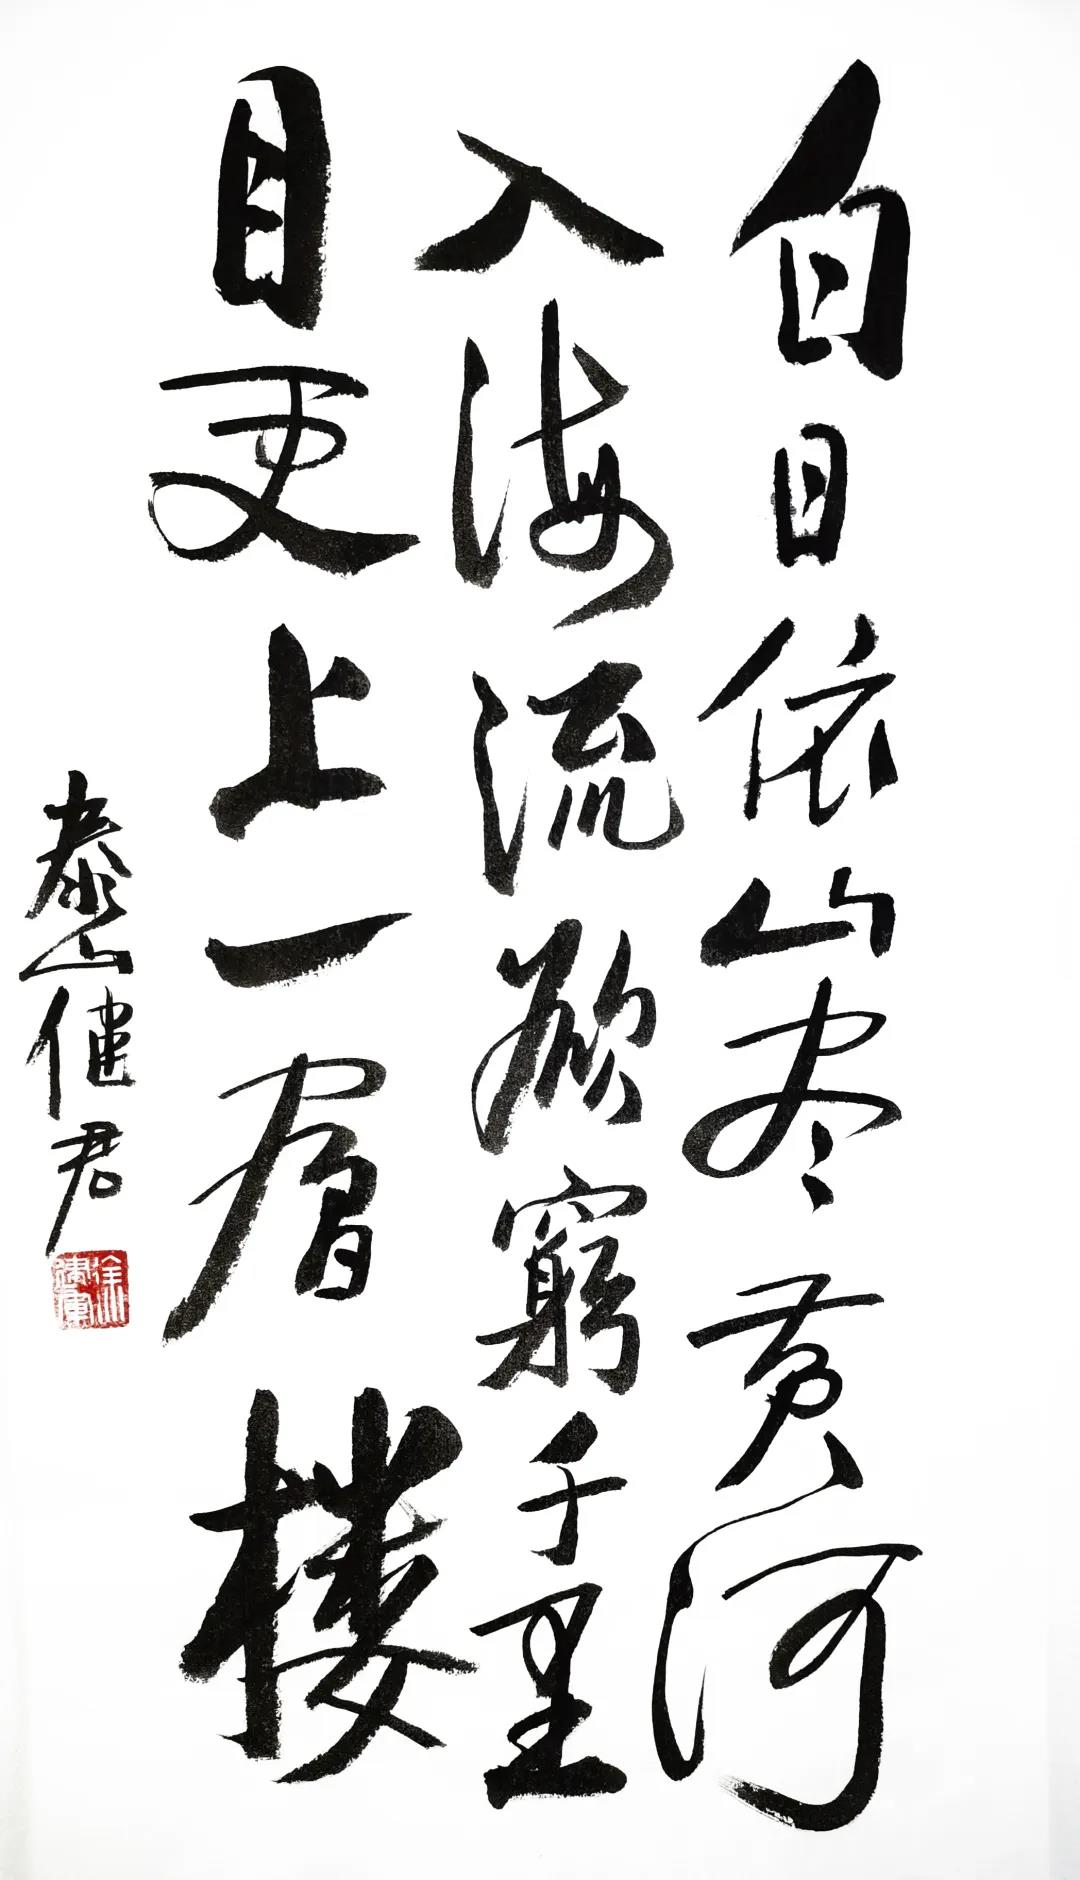 白日依山尽黄河
入海流欲窮千里
目更上一層楼
泰山健君
徐建軍